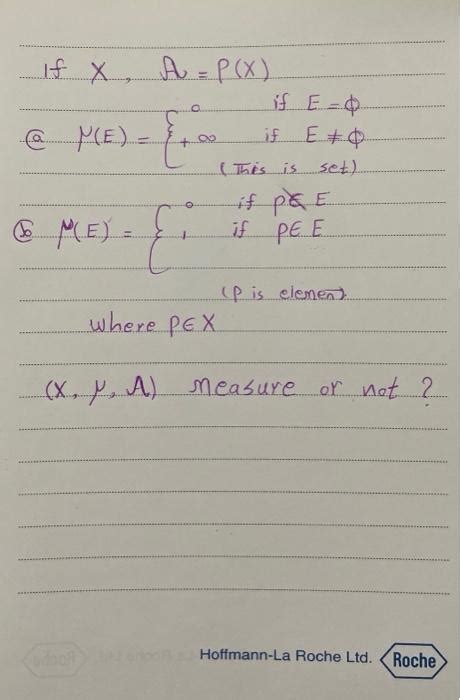 If X, A = P(X)
0 if E = ϕ
ⓐ μ(E) = { +∞ if E ≠ ϕ
(This is set)
0 if p∉ E
ⓑ μ(E) = { 1 if p∈ E
(p is elemen)
where p∈X
(X, μ, A) measure or not ?
Hoffmann-La Roche Ltd. Roche